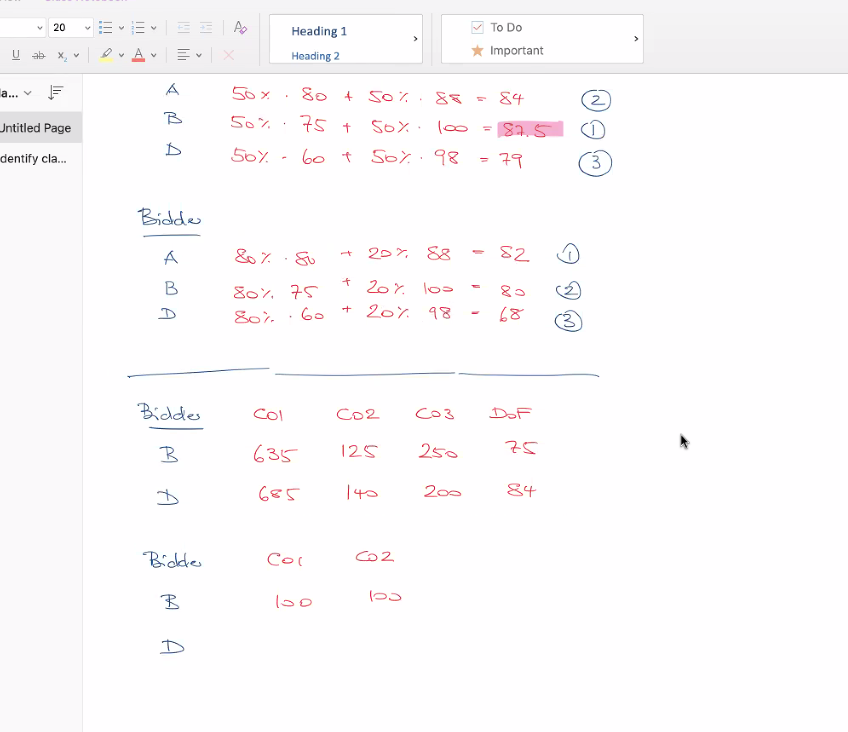 20
Heading 1
To Do
U ab x₂ A
Heading 2
Important
la...
Untitled Page
dentify cla...
A 50% · 80 + 50% · 88 = 84 ②
B 50% · 75 + 50% · 100 = 87.5 ①
D 50% - 60 + 50% · 98 = 79 ③
Bidder
A 80% · 80 + 20% 88 = 82 ①
B 80% 75 + 20% 100 = 80 ②
D 80% · 60 + 20% 98 = 68 ③
Bidder CO1 CO2 CO3 DoF
B 635 125 250 75
D 685 140 200 84
Bidder CO1 CO2
B 100 100
D